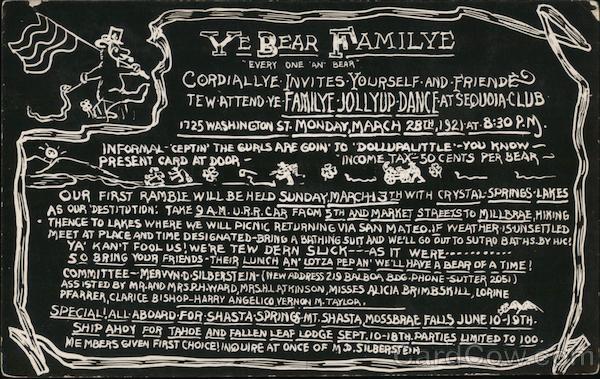 YE BEAR FAMILYE
"EVERY ONE 'AN' BEAR"
CORDIALLYE · INVITES · YOURSELF · AND · FRIENDE
TEW · ATTEND · YE FAMILYE · JOLLYUP · DANCE · AT SEQUOIA · CLUB
1725 WASHINGTON ST. MONDAY, MARCH 28TH, 1921 · AT 8:30 P.M.
INFORMAL - 'CEPTIN' THE GURLS ARE GOIN' TO 'DOLLUPALITTLE' - YOU KNOW -
PRESENT CARD AT DOOR - INCOME TAX - 50 CENTS PER BEAR -
OUR FIRST RAMBLE WILL BE HELD SUNDAY, MARCH 13TH WITH CRYSTAL SPRINGS LAKES
AS OUR 'DESTITUTION'. TAKE 9 A.M. U.R.R. CAR FROM 5TH AND MARKET STREETS TO MILLBRAE, HIKING
THENCE TO LAKES WHERE WE WILL PICNIC RETURNING VIA SAN MATEO. IF WEATHER IS UNSETTLED
MEET AT PLACE AND TIME DESIGNATED - BRING A BATHING SUIT AND WE'LL GO OUT TO SUTRO BATHS. BY HIC!
YA' KAN'T FOOL US! WE'RE TEW DERN SLICK - AS IT WERE
SO BRING YOUR FRIENDS - THEIR LUNCH AN' LOTZA PEP AN' WE'LL HAVE A BEAR OF A TIME!
COMMITTEE - MERVYN · D · SILBERSTEIN · (NEW ADDRESS 219 BALBOA BLDG · PHONE · SUTTER 2051)
ASSISTED BY MR. AND MRS. P.H. WARD, MRS. H.L. ATKINSON, MISSES ALICIA BRIMBSKILL, LORINE
PFARRER, CLARICE BISHOP · HARRY ANGELICO, VERNON M. TAYLOR.
SPECIAL! ALL ABOARD FOR SHASTA SPRINGS · MT. SHASTA, MOSSBRAE FALLS, JUNE 10-19TH.
SHIP AHOY FOR TAHOE AND FALLEN LEAF LODGE SEPT. 10-18TH. PARTIES LIMITED TO 100.
MEMBERS GIVEN FIRST CHOICE! INQUIRE AT ONCE OF M.D. SILBERSTEIN
CardCow.com